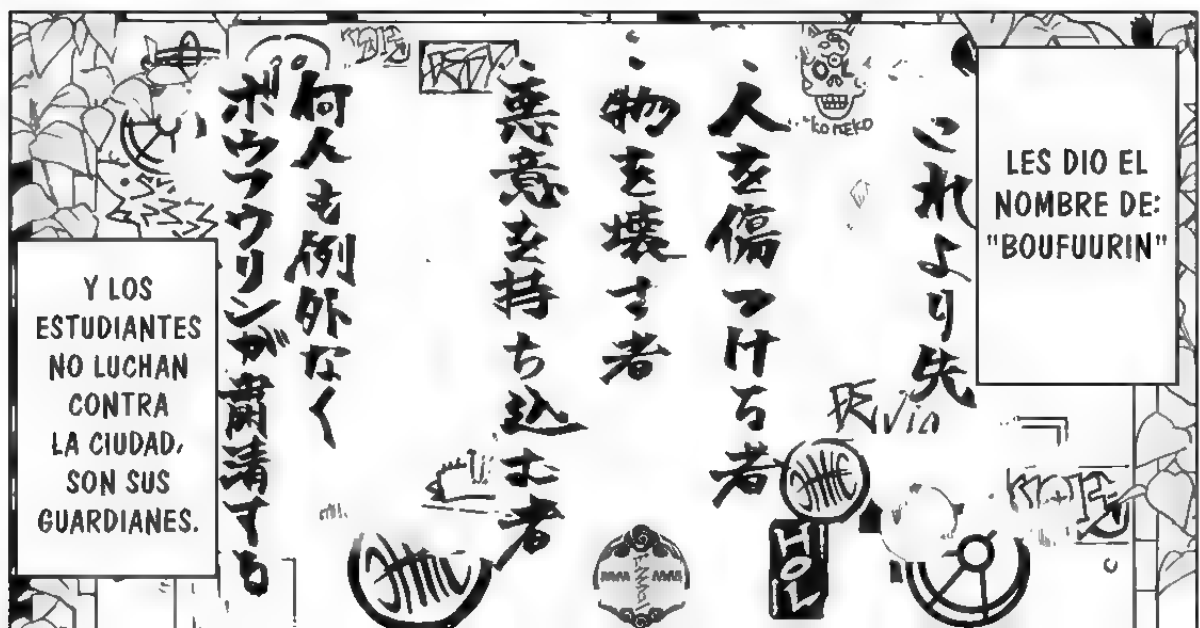 LES DIO EL
NOMBRE DE:
"BOUFUURIN"
これより先
・人を傷つける者
・物を壊す者
・悪意を持ち込む者
何人も例外なく
ボウフウリンが粛清する
KONEKO
HOL
Y LOS
ESTUDIANTES
NO LUCHAN
CONTRA
LA CIUDAD,
SON SUS
GUARDIANES.